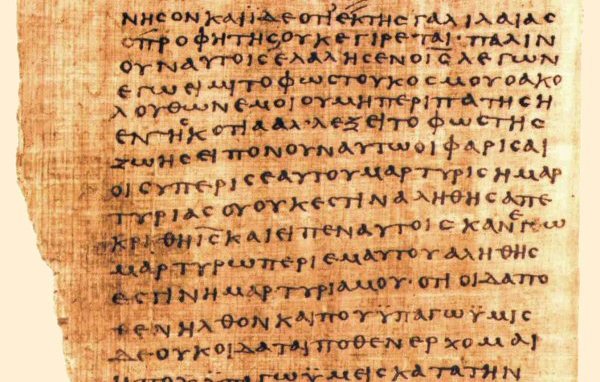 ΝΗϹΟΝΚΑΙΙΔΕΟΤἸΕΚΤΗϹΓΑΛΙΛΑΙΑϹ
ΟΠΡΟΦΗΤΗϹΟΥΚΕΓΙΡΕΤΑΙ·ΠΑΛΙΝ
ΟΥΝΑΥΤΟΙϹΕΛΑΛΗϹΕΝΟΙ̅Ϲ̅ΛΕΓΩΝ
ΕΓΩΕΙΜΙΤΟΦΩϹΤΟΥΚΟϹΜΟΥΟΑΚΟ
ΛΟΥΘΩΝΕΜΟΙΟΥΜΗΠΕΡΙΠΑΤΗϹΗ
ΕΝΤΗϹΚΟΤΙΑΑΛ·ΛΕΞΕΙΤΟΦΩϹΤΗϹ
ΖΩΗϹΕΙΠΟΝΟΥΝΑΥΤΩΟΙΦΑΡΙϹΑΙ
ΟΙϹΥΠΕΡΙϹΕΑΥΤΟΥΜΑΡΤΥΡΙϹΗΜΑΡ
ΤΥΡΙΑϹΟΥΟΥΚΕϹΤΙΝΑΛΗΘΗϹΑΠΕ
ΚΡΙΘΗΙ̅Ϲ̅ΚΑΙΕΙΠΕΝΑΥΤΟΙϹΚΑΝΕΓΩ
ΜΑΡΤΥΡΩΠΕΡΙΕΜΑΥΤΟΥΑΛΗΘΗϹ
ΕϹΤΙΝΗΜΑΡΤΥΡΙΑΜΟΥ·ΟΤΙΟΙΔΑΠΟ
ΘΕΝΗΛΘΟΝΚΑΙΠΟΥΫΠΑΓΩΫΜΙϹ
ΔΕΟΥΚΟΙΔΑΤΑΙΠΟΘΕΝΕΡΧΟΜΑΙ
ΗΠΟΥΫΠΑΓΩΫΜΕΙϹΚΑΤΑΤΗΝ